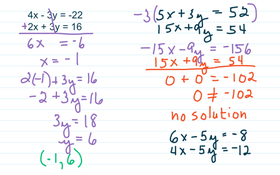 4x - 3y = -22
+2x + 3y = 16
6x = -6
x = -1
2(-1) + 3y = 16
-2 + 3y = 16
3y = 18
y = 6
(-1, 6)
-3(5x + 3y = 52)
15x + 9y = 54
-15x - 9y = -156
15x + 9y = 54
0 + 0 = -102
0 ≠ -102
no solution
6x - 5y = -8
4x - 5y = -12